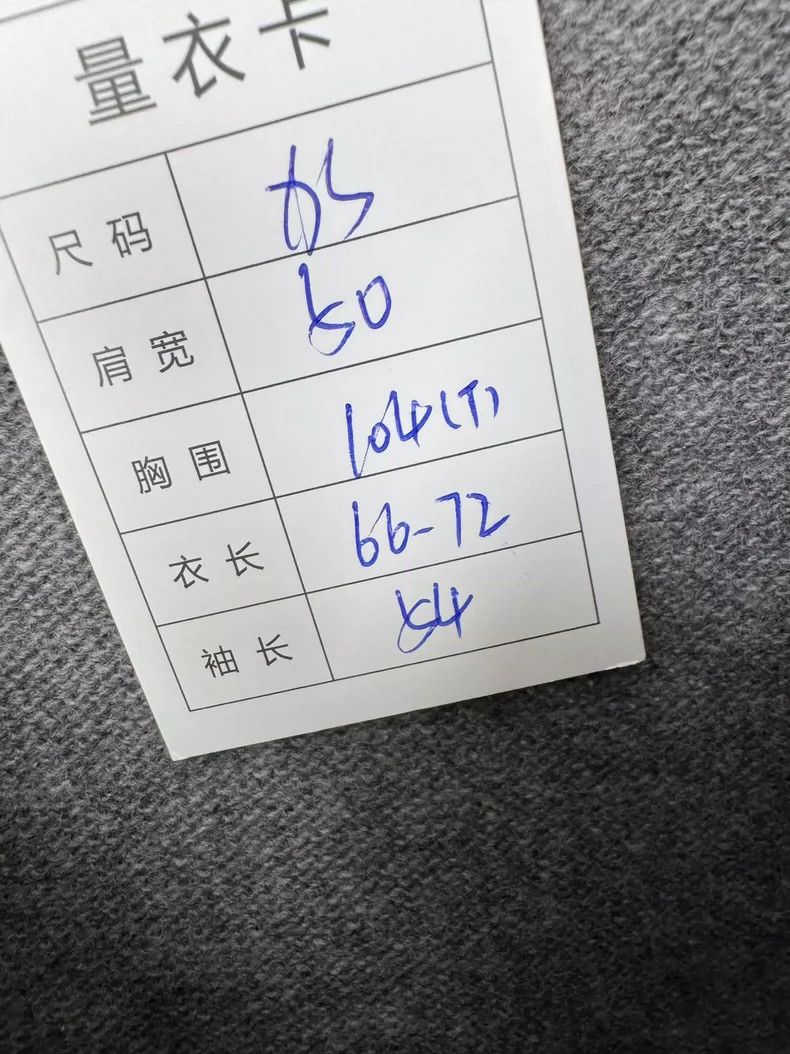 量衣卡
尺码
肩宽 50
胸围 104(T)
衣长 66-72
袖长 54